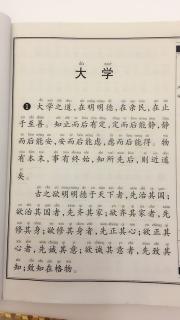 大学
❶大学之道,在明明德,在亲民,在止
于至善。知止而后有定,定而后能静,静
而后能安,安而后能虑,虑而后能得。物
有本末,事有终始,知所先后,则近道
矣。
古之欲明明德于天下者,先治其国;
欲治其国者,先齐其家;欲齐其家者,先
修其身;欲修其身者,先正其心;欲正其
心者,先诚其意;欲诚其意者,先致其
知;致知在格物。